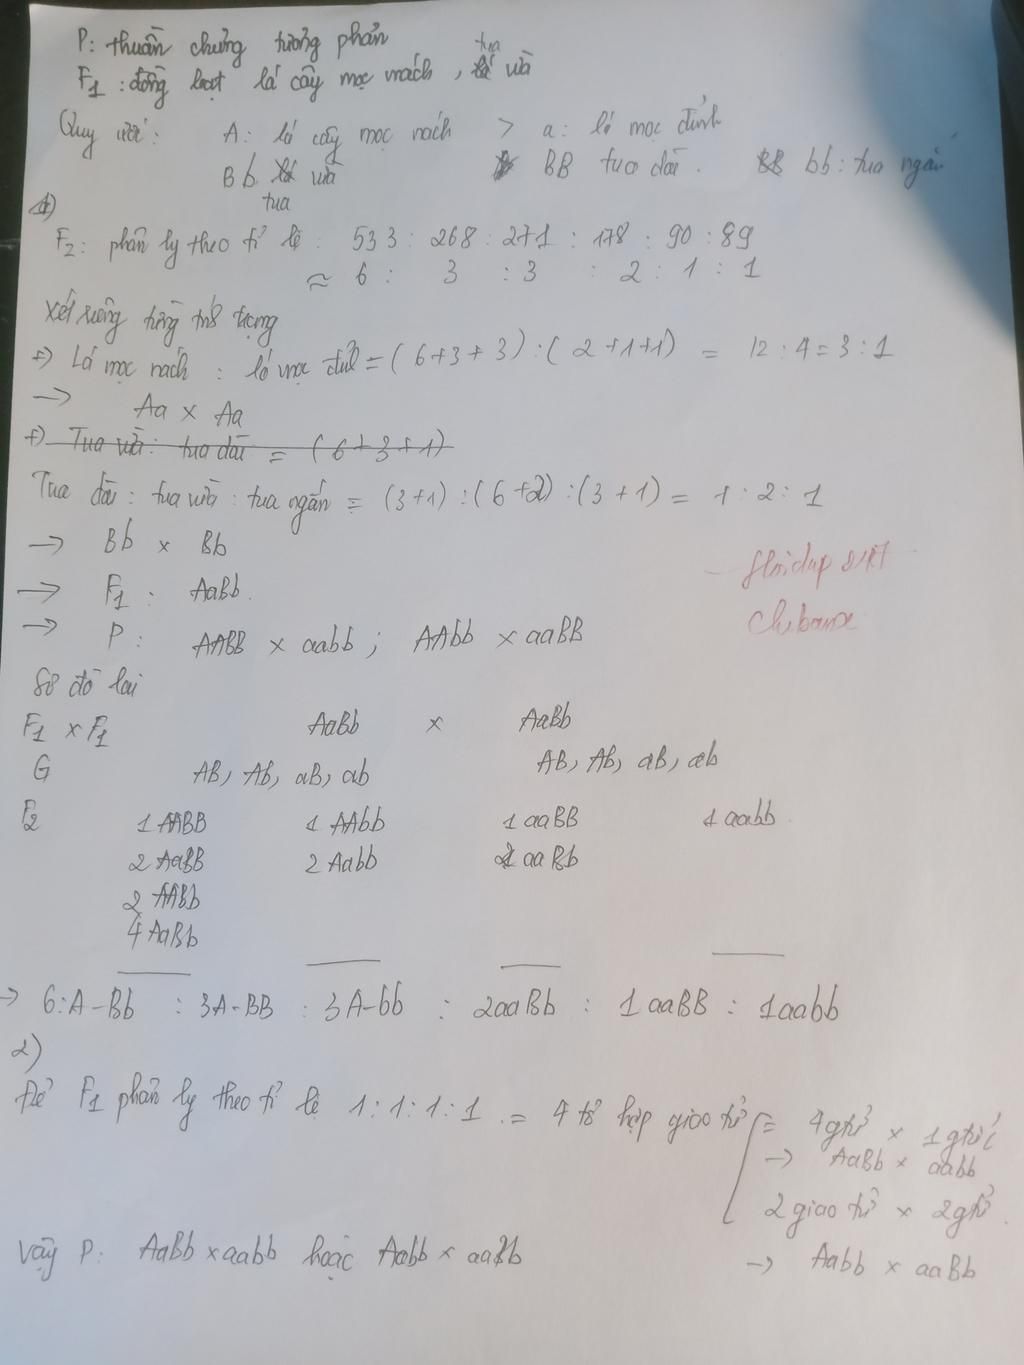 P: thuần chủng tương phản
F1: đồng loạt lá cây mọc nách, tua vừa
Quy ước: A: lá cây mọc nách > a: lá mọc đỉnh
Bb tua vừa BB tua dài. bb: tua ngắn
1)
F2: phân ly theo tỉ lệ: 533 : 268 : 271 : 178 : 90 : 89
≈ 6 : 3 : 3 : 2 : 1 : 1
Xét riêng từng tính trạng
+) Lá mọc nách : lá mọc đỉnh = (6+3+3) : (2+1+1) = 12 : 4 = 3 : 1
→ Aa × Aa
+) Tua vừa: tua dài = (6+3+1)
Tua dài : tua vừa : tua ngắn = (3+1) : (6+2) : (3+1) = 1 : 2 : 1
→ Bb × Bb
→ F1 : AaBb.
→ P: AABB × aabb ; AAbb × aaBB
Hoidap 247
Sơ đồ lai
F1 × F1 AaBb × AaBb
G AB, Ab, aB, ab AB, Ab, aB, ab
F2 1 AABB 1 AAbb 1 aaBB 1 aabb
2 AaBB 2 Aabb 2 aaBb
2 AABb
4 AaBb
→ 6:A-Bb : 3A-BB : 3A-bb : 2aaBb : 1aaBB : 1aabb
2)
Để F1 phân ly theo tỉ lệ 1:1:1:1 = 4 tổ hợp giao tử = 4gtử × 1gtử
→ AaBb × aabb
2 giao tử × 2gtử.
→ Aabb × aaBb
Vậy P: AaBb × aabb hoặc Aabb × aaBb